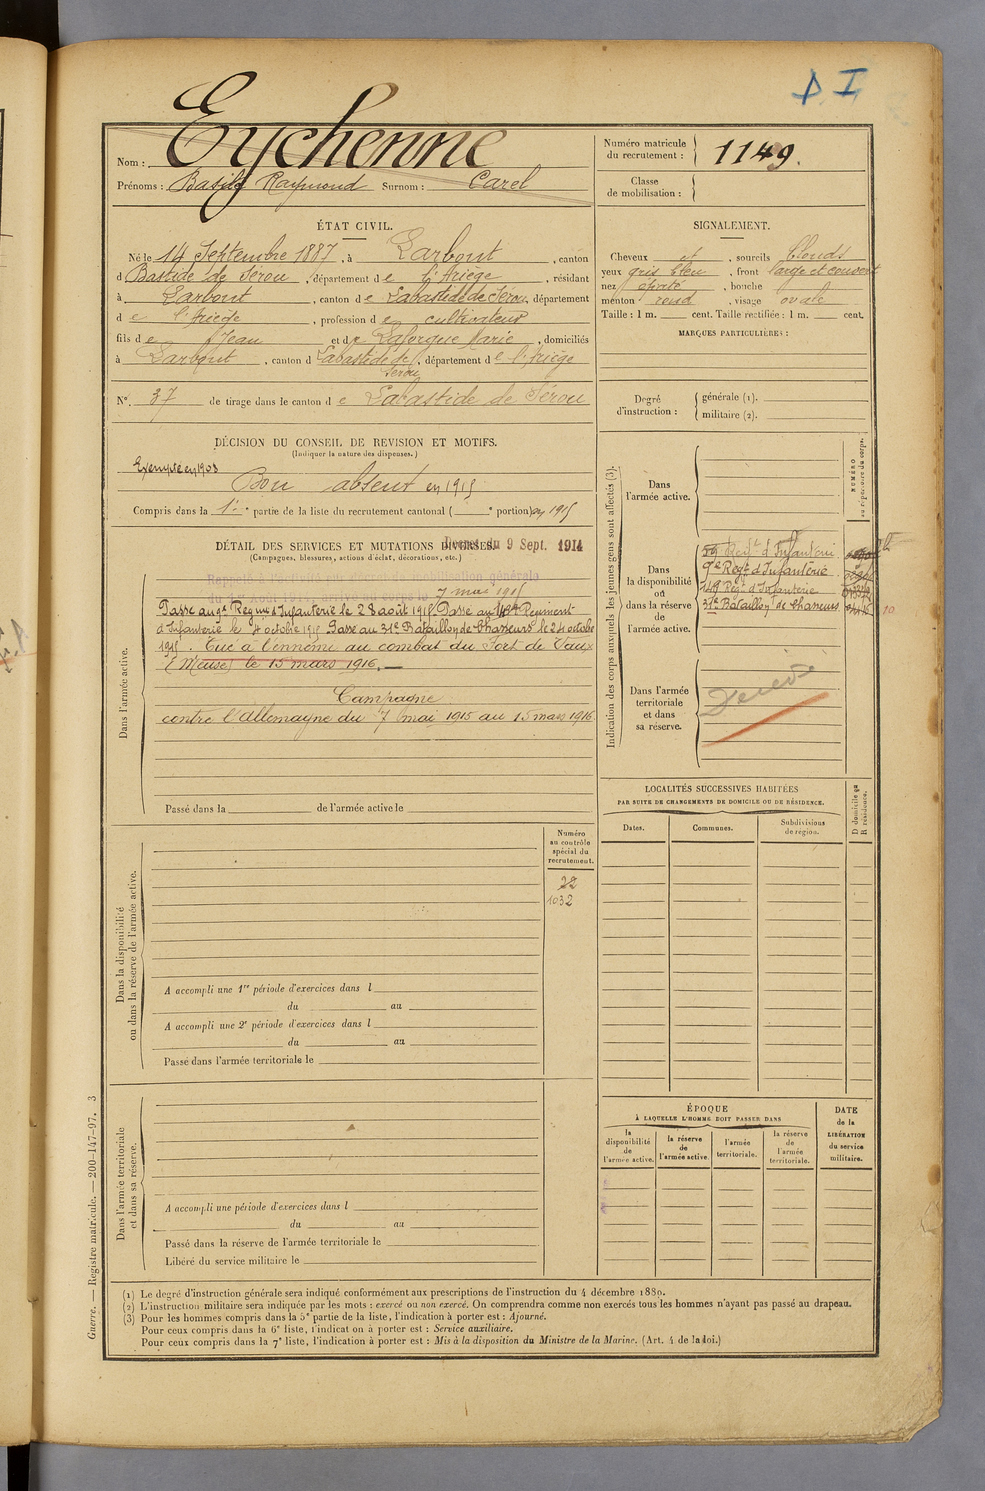 D I
Eychenne
Nom :
Prénoms : Basile Raymond Surnom : Carel
Numéro matricule
du recrutement :
1149.
Classe
de mobilisation :
ÉTAT CIVIL.
Né le 14 Septembre 1887, à Larbont, canton
d Bastide de Sérou, département de l'Ariège, résidant
à Larbont, canton de Labastide de Sérou, département
de l'Ariège, profession de cultivateur
fils de Jean et de Laforgue Marie, domiciliés
à Larbont, canton d Labastide de Sérou, département de l'Ariège
N° 37 de tirage dans le canton de Labastide de Sérou
SIGNALEMENT.
Cheveux et, sourcils blonds
yeux gris bleu, front large et couvert
nez épaté, bouche
menton rond, visage ovale
Taille : 1 m. cent. Taille rectifiée : 1 m. cent.
MARQUES PARTICULIÈRES :
Degré
d'instruction :
générale (1).
militaire (2).
DÉCISION DU CONSEIL DE REVISION ET MOTIFS.
(Indiquer la nature des dispenses.)
Exempté en 1908
Bon absent en 1915
Compris dans la 1re partie de la liste du recrutement cantonal ( e portion) en 1915
DÉTAIL DES SERVICES ET MUTATIONS DIVERSES.
Décret du 9 Sept. 1914
(Campagnes, blessures, actions d'éclat, décorations, etc.)
7 mai 1915
Passé au 9e Régim d'Infanterie le 28 août 1915 Passé au 14e Régiment
d'Infanterie le 4 octobre 1915 Passé au 31e Bataillon de Chasseurs le 24 octobre
1915. Tué à l'ennemi au combat du Fort de Vaux
(Meuse) le 15 mars 1916.
Campagne
contre l'Allemagne du 7 mai 1915 au 15 mars 1916.
Dans l'armée active.
Passé dans la de l'armée active le
Indication des corps auxquels les jeunes gens sont affectés (3).
NUMÉRO
au répertoire du corps.
Dans
l'armée active.
Dans
la disponibilité
ou
dans la réserve
de
l'armée active.
59 Régt d'Infanterie
9e Régt d'Infanterie
14e Régt d'Infanterie
31e Bataillon de Chasseurs
10
Dans l'armée
territoriale
et dans
sa réserve.
Décédé
LOCALITÉS SUCCESSIVES HABITÉES
PAR SUITE DE CHANGEMENTS DE DOMICILE OU DE RÉSIDENCE.
D domicile ou
R résidence.
Dates.
Communes.
Subdivisions
de région.
Numéro
au contrôle
spécial du
recrutement.
22
1032
Dans la disponibilité
ou dans la réserve de l'armée active.
A accompli une 1re période d'exercices dans l
du au
A accompli une 2e période d'exercices dans l
du au
Passé dans l'armée territoriale le
Dans l'armée territoriale
et dans sa réserve.
A accompli une période d'exercices dans l
du au
Passé dans la réserve de l'armée territoriale le
Libéré du service militaire le
ÉPOQUE
À LAQUELLE L'HOMME DOIT PASSER DANS
la
disponibilité
de
l'armée active.
la réserve
de
l'armée active.
l'armée
territoriale.
la réserve
de
l'armée
territoriale.
DATE
de la
LIBÉRATION
du service
militaire.
Guerre. — Registre matricule. — 200-147-97. 3
(1) Le degré d'instruction générale sera indiqué conformément aux prescriptions de l'instruction du 4 décembre 1889.
(2) L'instruction militaire sera indiquée par les mots : exercé ou non exercé. On comprendra comme non exercés tous les hommes n'ayant pas passé au drapeau.
(3) Pour les hommes compris dans la 5e partie de la liste, l'indication à porter est : Ajourné.
Pour ceux compris dans la 6e liste, l'indication à porter est : Service auxiliaire.
Pour ceux compris dans la 7e liste, l'indication à porter est : Mis à la disposition du Ministre de la Marine. (Art. 4 de la loi.)